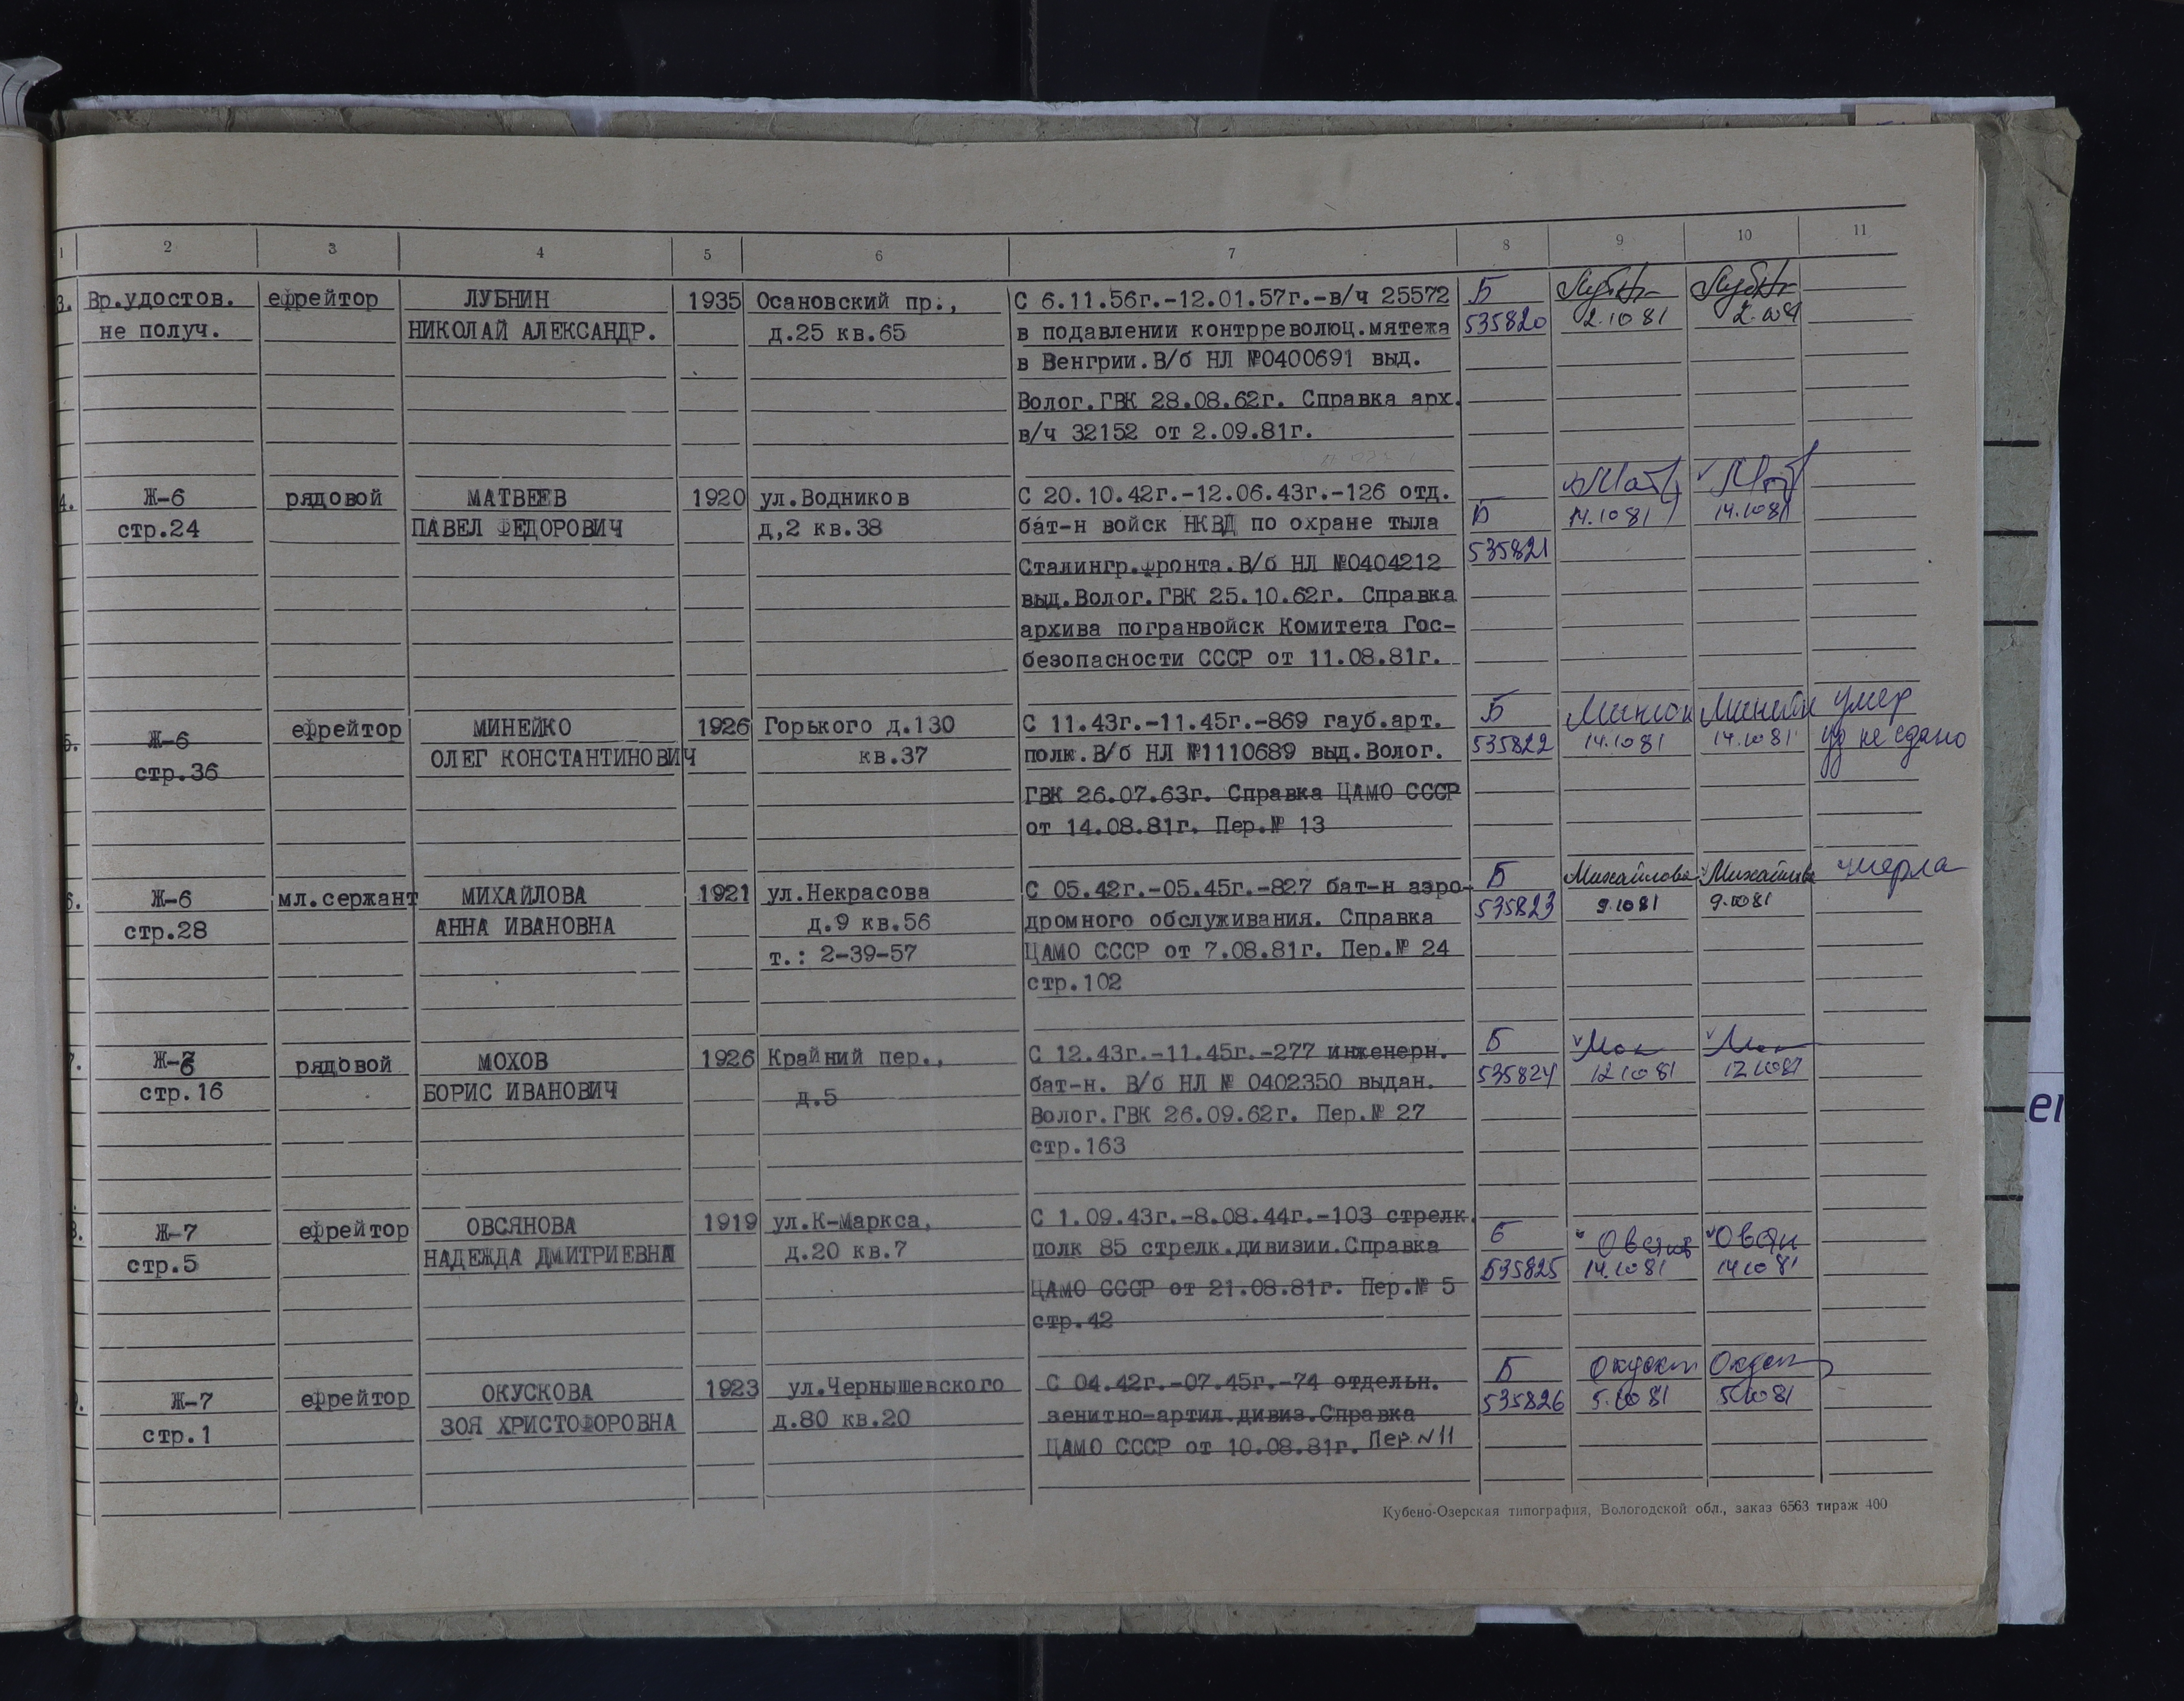 1 2 3 4 5 6 7 8 9 10 11
3. Вр.удостов. ефрейтор ЛУБНИН 1935 Осановский пр., С 6.11.56г.-12.01.57г.-в/ч 25572 Б
не получ. НИКОЛАЙ АЛЕКСАНДР. д.25 кв.65 в подавлении контрреволюц.мятежа 535820 2.10 81 2.10 81
в Венгрии.В/б НЛ №0400691 выд.
Волог.ГВК 28.08.62г. Справка арх.
в/ч 32152 от 2.09.81г.
4. Ж-6 рядовой МАТВЕЕВ 1920 ул.Водников С 20.10.42г.-12.06.43г.-126 отд.
стр.24 ПАВЕЛ ФЕДОРОВИЧ д,2 кв.38 бат-н войск НКВД по охране тыла Б 14.10 81 14.10 81
Сталингр.фронта.В/б НЛ №0404212 535821
выд.Волог.ГВК 25.10.62г. Справка
архива погранвойск Комитета Гос-
безопасности СССР от 11.08.81г.
5. Ж-6 ефрейтор МИНЕЙКО 1926 Горького д.130 С 11.43г.-11.45г.-869 гауб.арт. Б умер
стр.36 ОЛЕГ КОНСТАНТИНОВИЧ кв.37 полк.В/б НЛ №1110689 выд.Волог. 535822 14.10 81 14.10 81 уд не сдано
ГВК 26.07.63г. Справка ЦАМО СССР
от 14.08.81г. Пер.№ 13
6. Ж-6 мл.сержант МИХАЙЛОВА 1921 ул.Некрасова С 05.42г.-05.45г.-827 бат-н аэро- Б Михайлова Михайлова умерла
стр.28 АННА ИВАНОВНА д.9 кв.56 дромного обслуживания. Справка 535823 9.10 81 9.10 81
т.: 2-39-57 ЦАМО СССР от 7.08.81г. Пер.№ 24
стр.102
7. Ж-6 рядовой МОХОВ 1926 Крайний пер., С 12.43г.-11.45г.-277 инженерн. Б
стр.16 БОРИС ИВАНОВИЧ д.5 бат-н. В/б НЛ № 0402350 выдан. 535824 12 10 81 12 10 81
Волог.ГВК 26.09.62г. Пер.№ 27
стр.163
8. Ж-7 ефрейтор ОВСЯНОВА 1919 ул.К-Маркса, С 1.09.43г.-8.08.44г.-103 стрелк. Б
стр.5 НАДЕЖДА ДМИТРИЕВНА д.20 кв.7 полк 85 стрелк.дивизии.Справка 535825 14.10 81 14 10 81
ЦАМО СССР от 21.08.81г. Пер.№ 5
стр.42
Ж-7 ефрейтор ОКУСКОВА 1923 ул.Чернышевского С 04.42г.-07.45г.-74 отдельн. Б
стр.1 ЗОЯ ХРИСТОФОРОВНА д.80 кв.20 зенитно-артил.дивиз.Справка 535826 5.10 81 5.10 81
ЦАМО СССР от 10.08.81г. Пер N 11
Кубено-Озерская типография, Вологодской обл., заказ 6563 тираж 400